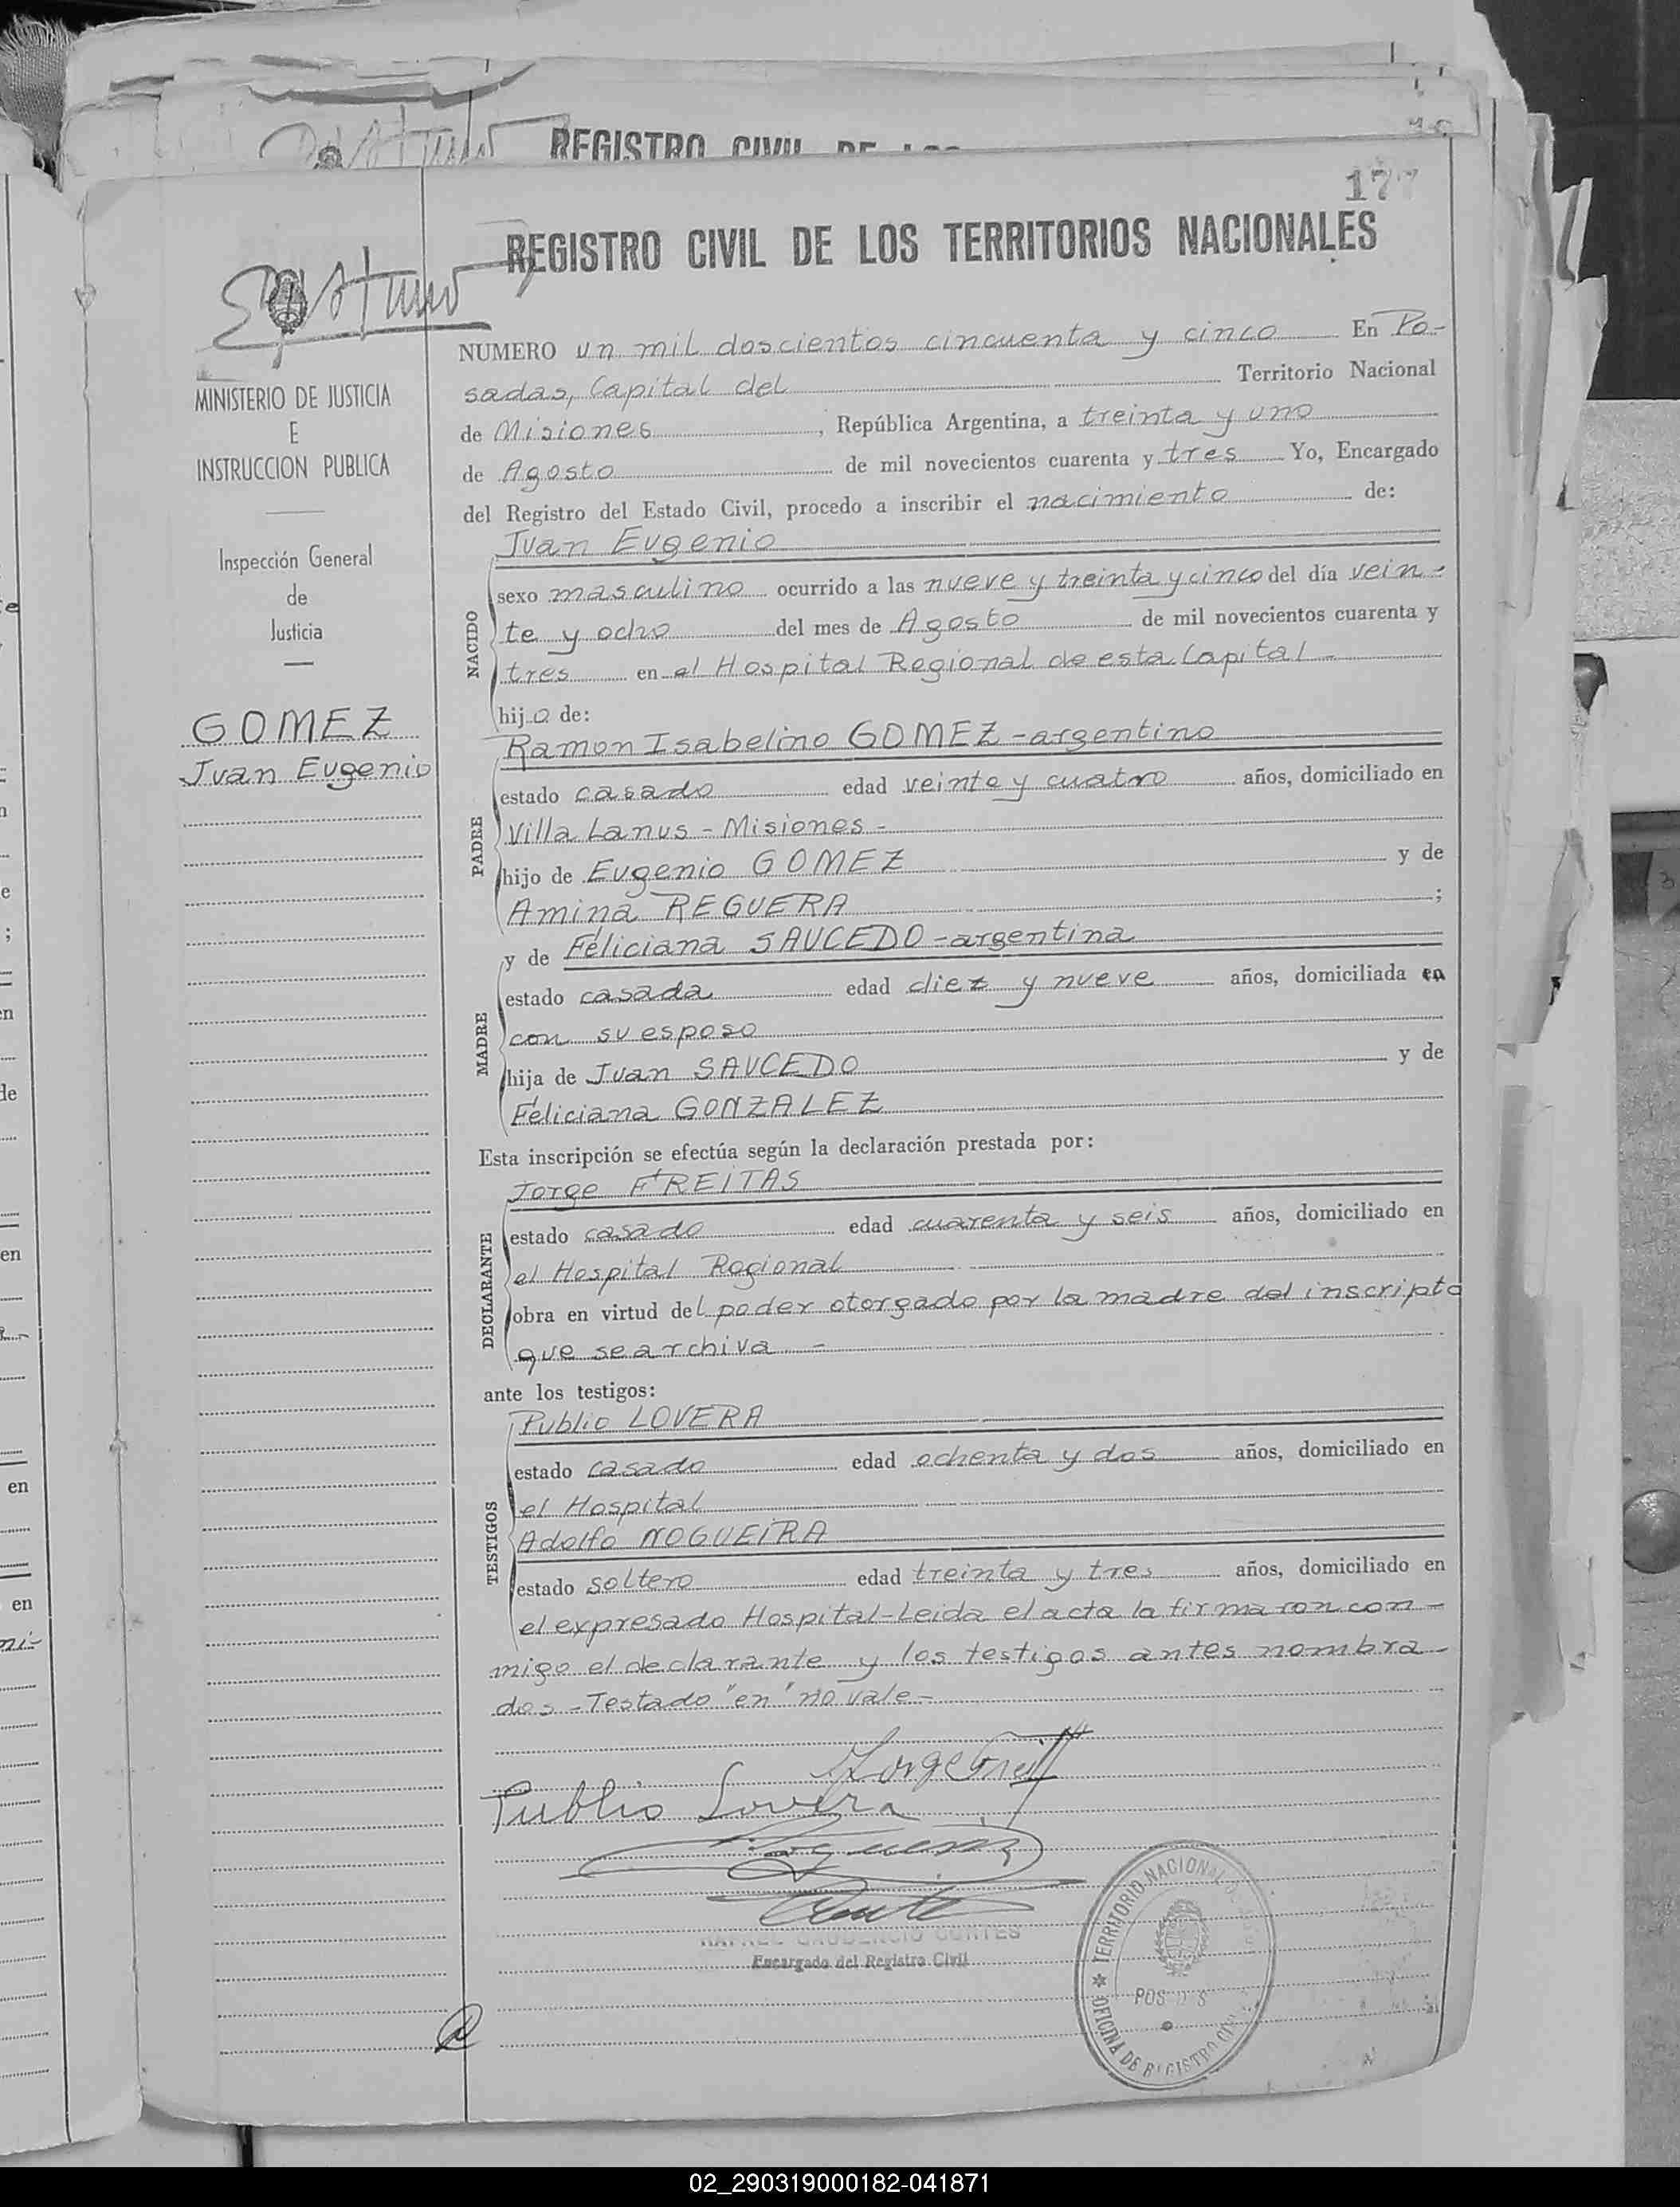 REGISTRO CIVIL DE LOS
177
REGISTRO CIVIL DE LOS TERRITORIOS NACIONALES
MINISTERIO DE JUSTICIA
E
INSTRUCCION PUBLICA
Inspección General
de
Justicia
GOMEZ
Juan Eugenio
NUMERO un mil doscientos cincuenta y cinco En Po-
sadas, Capital del Territorio Nacional
de Misiones, República Argentina, a treinta y uno
de Agosto de mil novecientos cuarenta y tres Yo, Encargado
del Registro del Estado Civil, procedo a inscribir el nacimiento de:
NACIDO
Juan Eugenio
sexo masculino ocurrido a las nueve y treinta y cinco del día vein-
te y ocho del mes de Agosto de mil novecientos cuarenta y
tres en el Hospital Regional de esta Capital-
hijo de:
PADRE
Ramon Isabelino GOMEZ-argentino
estado casado edad veinte y cuatro años, domiciliado en
Villa Lanus-Misiones-
hijo de Eugenio GOMEZ y de
Amina REGUERA;
MADRE
y de Feliciana SAUCEDO-argentina
estado casada edad diez y nueve años, domiciliada en
con su esposo
hija de Juan SAUCEDO y de
Feliciana GONZALEZ
Esta inscripción se efectúa según la declaración prestada por:
DECLARANTE
Jorge FREITAS
estado casado edad cuarenta y seis años, domiciliado en
el Hospital Regional
obra en virtud del poder otorgado por la madre del inscripto
que se archiva-
ante los testigos:
TESTIGOS
Publio LOVERA
estado casado edad ochenta y dos años, domiciliado en
el Hospital
Adolfo NOGUEIRA
estado soltero edad treinta y tres años, domiciliado en
el expresado Hospital-Leida el acta la firmaron con-
migo el declarante y los testigos antes nombra-
dos-Testado "en" no vale-
Jorge
Publio Lovera
RAFAEL GAUDENCIO CORTES
Encargado del Registro Civil
TERRITORIO NACIONAL
OFICINA DE REGISTRO CIVIL
02_290319000182-041871